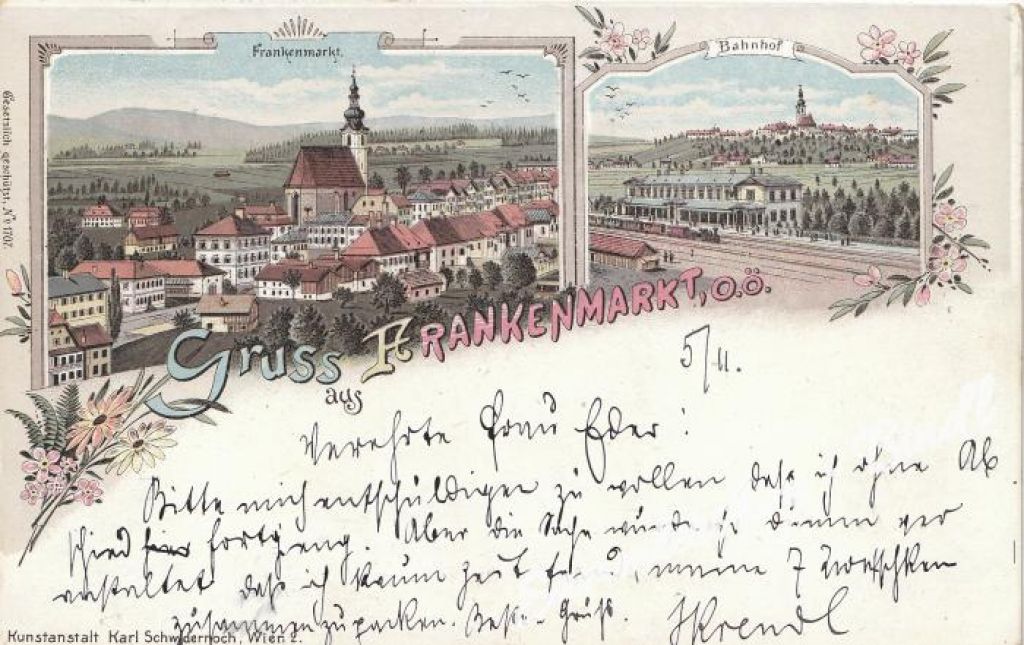 Frankenmarkt.
Bahnhof
Gesetzlich geschützt, No 1707.
Gruss aus Frankenmarkt, O.Ö.
5/11.
Verehrte Frau Eder!
Bitte mich entschuldigen zu wollen dass ich ohne Ab
schied fortgieng. Aber die Sache wurde so ver
anstaltet dass ich kaum Zeit fand, meine 7 Zwetschken
zusammen zu packen. Besten Gruß.
Kunstanstalt Karl Schwidernoch, Wien 2.